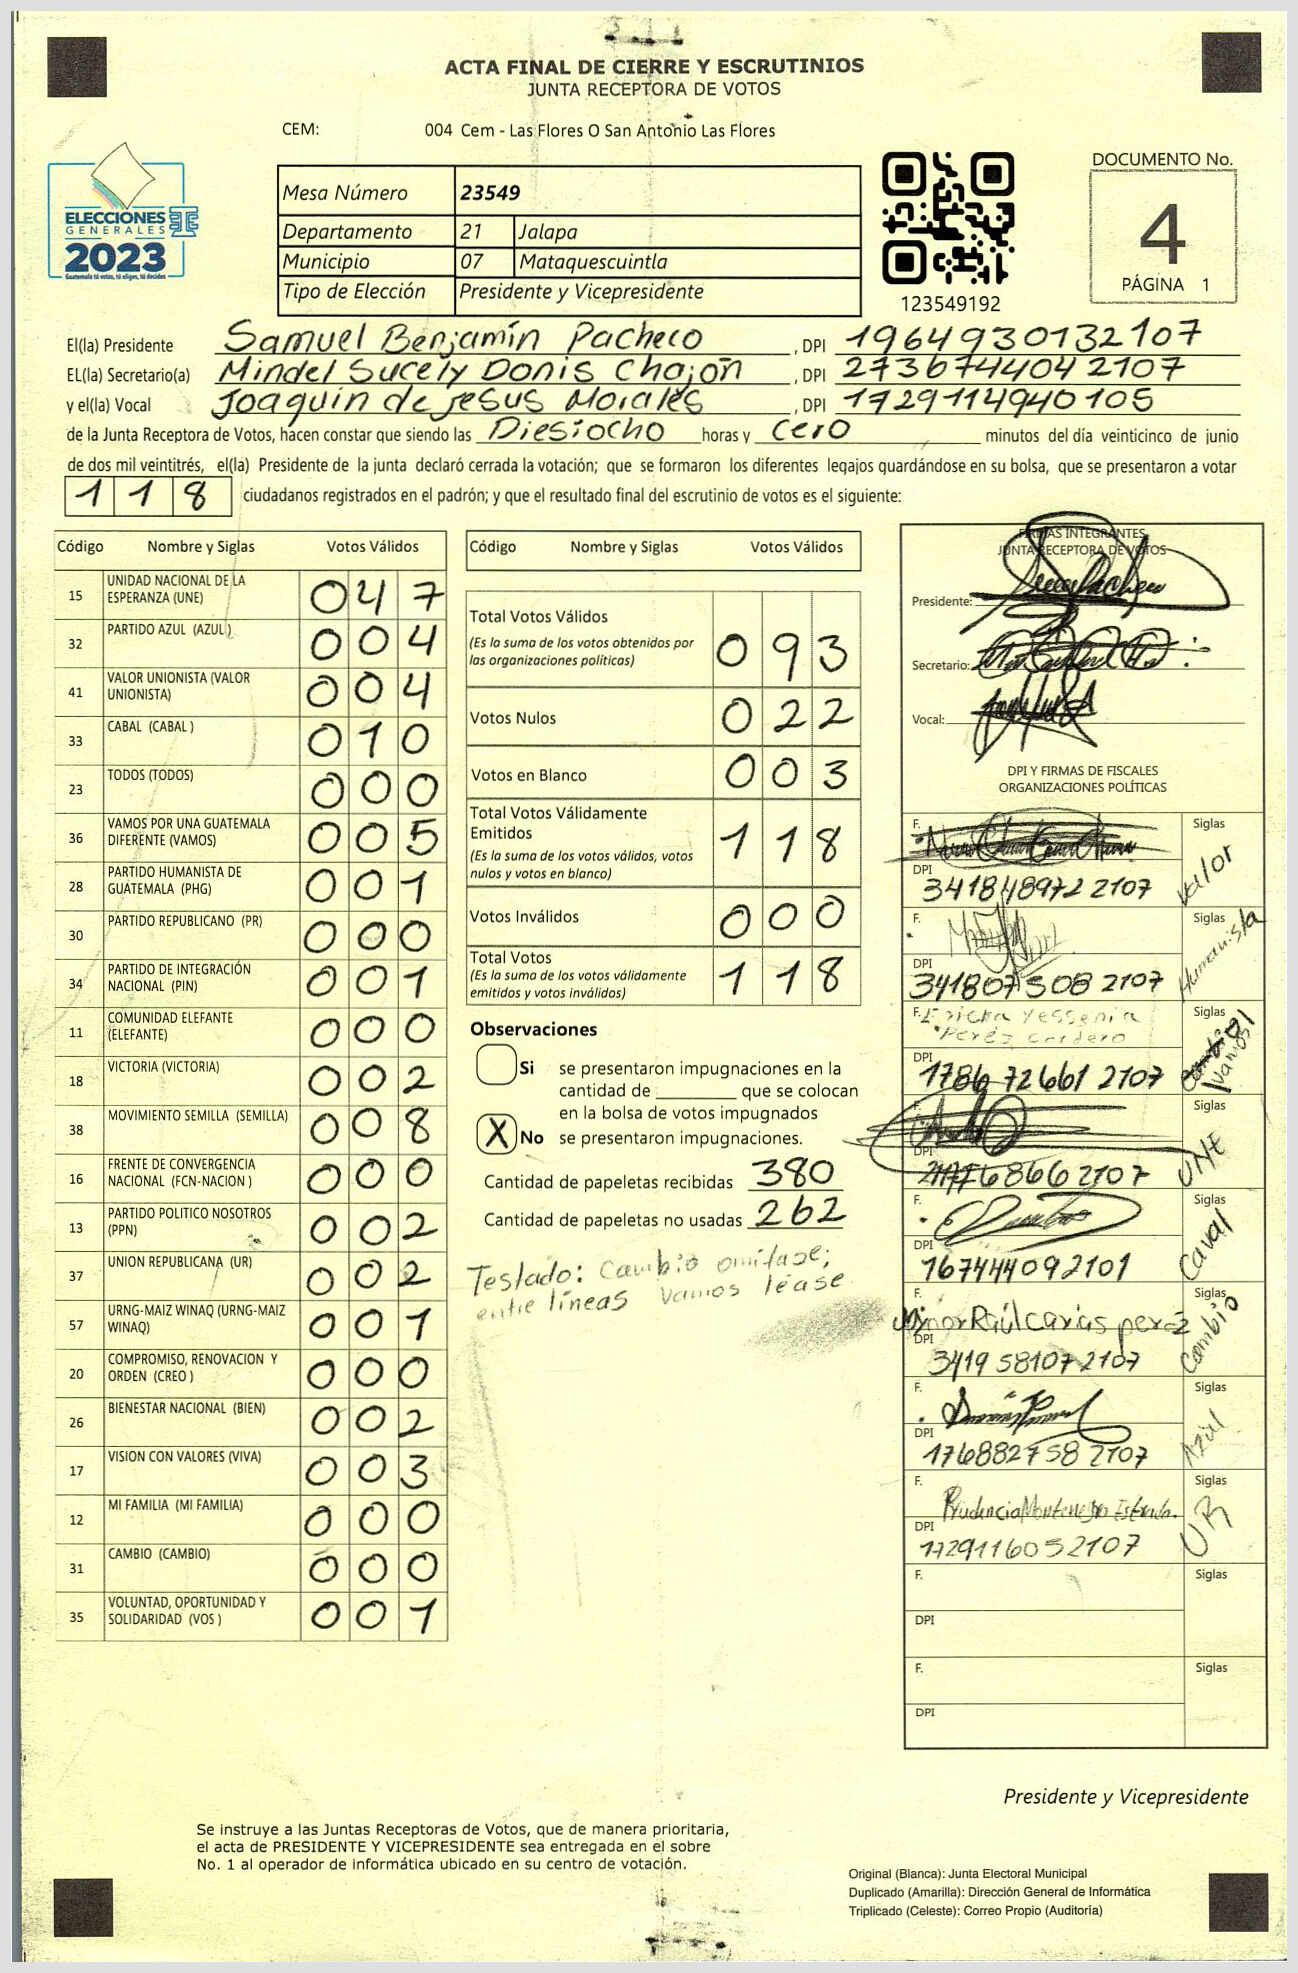 ACTA FINAL DE CIERRE Y ESCRUTINIOS
JUNTA RECEPTORA DE VOTOS
CEM: 004 Cem - Las Flores O San Antonio Las Flores
ELECCIONES
GENERALES
2023
Guatemala tú votas, tú eliges, tú decides
Mesa Número 23549
Departamento 21 Jalapa
Municipio 07 Mataquescuintla
Tipo de Elección Presidente y Vicepresidente
123549192
DOCUMENTO No.
4
PÁGINA 1
El(la) Presidente Samuel Benjamín Pacheco , DPI 1964930132107
EL(la) Secretario(a) Mindel Sucely Donis Chajón , DPI 2736744042107
y el(la) Vocal Joaquín de Jesus Morales , DPI 1729114940105
de la Junta Receptora de Votos, hacen constar que siendo las Diesiocho horas y cero minutos del día veinticinco de junio
de dos mil veintitrés, el(la) Presidente de la junta declaró cerrada la votación; que se formaron los diferentes legajos guardándose en su bolsa, que se presentaron a votar
118 ciudadanos registrados en el padrón; y que el resultado final del escrutinio de votos es el siguiente:
Código Nombre y Siglas Votos Válidos
15 UNIDAD NACIONAL DE LA ESPERANZA (UNE) 047
32 PARTIDO AZUL (AZUL ) 004
41 VALOR UNIONISTA (VALOR UNIONISTA) 004
33 CABAL (CABAL ) 010
23 TODOS (TODOS) 000
36 VAMOS POR UNA GUATEMALA DIFERENTE (VAMOS) 005
28 PARTIDO HUMANISTA DE GUATEMALA (PHG) 001
30 PARTIDO REPUBLICANO (PR) 000
34 PARTIDO DE INTEGRACIÓN NACIONAL (PIN) 001
11 COMUNIDAD ELEFANTE (ELEFANTE) 000
18 VICTORIA (VICTORIA) 002
38 MOVIMIENTO SEMILLA (SEMILLA) 008
16 FRENTE DE CONVERGENCIA NACIONAL (FCN-NACION ) 000
13 PARTIDO POLITICO NOSOTROS (PPN) 002
37 UNION REPUBLICANA (UR) 002
57 URNG-MAIZ WINAQ (URNG-MAIZ WINAQ) 001
20 COMPROMISO, RENOVACION Y ORDEN (CREO ) 000
26 BIENESTAR NACIONAL (BIEN) 002
17 VISION CON VALORES (VIVA) 003
12 MI FAMILIA (MI FAMILIA) 000
31 CAMBIO (CAMBIO) 000
35 VOLUNTAD, OPORTUNIDAD Y SOLIDARIDAD (VOS ) 001
Código Nombre y Siglas Votos Válidos
Total Votos Válidos 093
(Es la suma de los votos obtenidos por
las organizaciones políticas)
Votos Nulos 022
Votos en Blanco 003
Total Votos Válidamente
Emitidos 118
(Es la suma de los votos válidos, votos
nulos y votos en blanco)
Votos Inválidos 000
Total Votos 118
(Es la suma de los votos válidamente
emitidos y votos inválidos)
Observaciones
Si se presentaron impugnaciones en la
cantidad de ________ que se colocan
en la bolsa de votos impugnados
X No se presentaron impugnaciones.
Cantidad de papeletas recibidas 380
Cantidad de papeletas no usadas 262
Testado: Cambio omitase;
entre líneas Vamos léase
FIRMAS INTEGRANTES
JUNTA RECEPTORA DE VOTOS
Presidente:
Secretario:
Vocal:
DPI Y FIRMAS DE FISCALES
ORGANIZACIONES POLÍTICAS
F. Siglas Valor
DPI 3418489722107
F. Siglas Humanista
DPI 3418075082107
F. Ericka Yessenia Siglas Vamos
DPI 1786726612107
F. Siglas UNE
DPI 6866 2107
F. Siglas Caval
DPI 1674440922101
F. Minor Raúl Carias perez Siglas Cambio
DPI 3419581072107
F. Siglas Azul
DPI 1768827582107
F. Prudencio Montenegro Estrada. Siglas UR
DPI 1729116052107
F. Siglas
DPI
F. Siglas
DPI
Presidente y Vicepresidente
Se instruye a las Juntas Receptoras de Votos, que de manera prioritaria,
el acta de PRESIDENTE Y VICEPRESIDENTE sea entregada en el sobre
No. 1 al operador de informática ubicado en su centro de votación.
Original (Blanca): Junta Electoral Municipal
Duplicado (Amarilla): Dirección General de Informática
Triplicado (Celeste): Correo Propio (Auditoría)